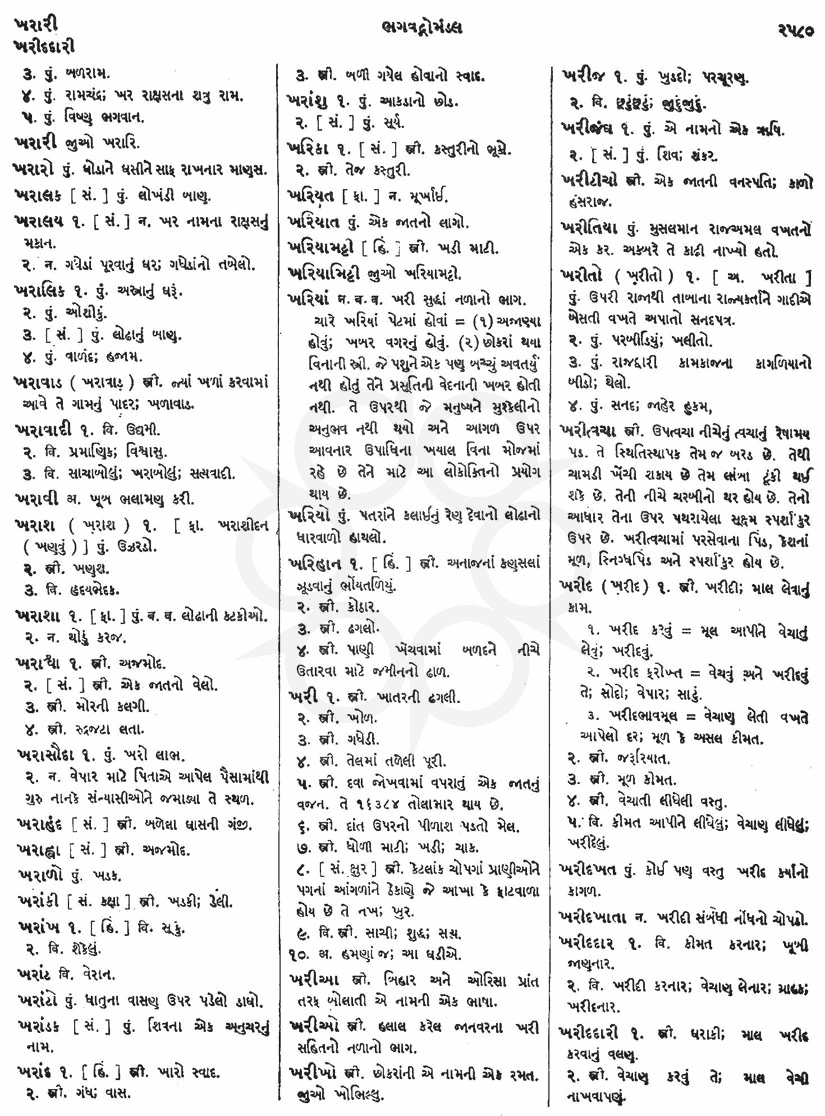 ખરારી
ખરીદદારી
ભગવદ્ગોમંડલ
૨૫૮૦
૩. પું. બળરામ.
૪. પું. રામચંદ્ર; ખર રાક્ષસના શત્રુ રામ.
૫. પું. વિષ્ણુ ભગવાન.
ખરારી જુઓ ખરારિ.
ખરારો પું. ઘોડાને ઘસીને સાફ રાખનાર માણસ.
ખરાલક [ સં. ] પું. લોખંડી બાણ.
ખરાલય ૧. [ સં. ] ન. ખર નામના રાક્ષસનું
મકાન.
૨. ન. ગધેડાં પૂરવાનું ઘર; ગધેડાંનો તબેલો.
ખરાલિક ૧. પું. અસ્ત્રાનું ઘરૂં.
૨. પું. ઓશીકું.
૩. [ સં. ] પું. લોઢાનું બાણ.
૪. પું. વાળંદ; હજામ.
ખરાવાડ ( ખરાવાડ઼ ) સ્ત્રી. જ્યાં ખળાં કરવામાં
આવે તે ગામનું પાદર; ખળાવાડ.
ખરાવાદી ૧. વિ. ઉદ્યમી.
૨. વિ. પ્રમાણિક; વિશ્વાસુ.
૩. વિ. સાચાબોલું; ખરાબોલું; સત્યવાદી.
ખરાવી અ. ખૂબ ભલામણ કરી.
ખરાશ ( ખ઼રાશ ) ૧. [ ફા. ખરાશીદન
( ખણવું ) ] પું. ઉઝરડો.
૨. સ્ત્રી. ખણુશ.
૩. વિ. હૃદયભેદક.
ખરાશા ૧. [ ફા. ] પું. બ. વ. લોઢાની કટકીઓ.
૨. ન. ચોઠું કરજ.
ખરાશ્વા ૧. સ્ત્રી. અજમોદ.
૨. [ સં. ] સ્ત્રી. એક જાતનો વેલો.
૩. સ્ત્રી. મોરની કલગી.
૪. સ્ત્રી. રુદ્રજટા લતા.
ખરાસૌદા ૧. પું. ખરો લાભ.
૨. ન. વેપાર માટે પિતાએ આપેલ પૈસામાંથી
ગુરુ નાનકે સંન્યાસીઓને જમાડ્યા તે સ્થળ.
ખરાહંદ [ સં. ] સ્ત્રી. બળેલા ઘાસની ગંજી.
ખરાહ્વા [ સં. ] સ્ત્રી. અજમોદ.
ખરાળો પું. ખડક.
ખરાંકી [ સં. કક્ષા ] સ્ત્રી. ખડકી; ડેલી.
ખરાંખ ૧. [ હિં. ] વિ. સૂકું.
૨. વિ. શેકેલું.
ખરાંટ વિ. વેરાન.
ખરાંટો પું. ધાતુના વાસણ ઉપર પડેલો ડાઘો.
ખરાંડક [ સં. ] પું. શિવના એક અનુચરનું
નામ.
ખરાંદ ૧. [ હિં. ] સ્ત્રી. ખારો સ્વાદ.
૨. સ્ત્રી. ગંધ; વાસ.
૩. સ્ત્રી. બળી ગયેલ હોવાનો સ્વાદ.
ખરાંશુ ૧. પું. આકડાનો છોડ.
૨. [ સં. ] પું. સૂર્ય.
ખરિકા ૧. [ સં. ] સ્ત્રી. કસ્તુરીનો ભૂકો.
૨. સ્ત્રી. તેજ કસ્તુરી.
ખરિયત [ ફા. ] ન. મૂર્ખાઈ.
ખરિયાત પું. એક જાતનો લાગો.
ખરિયામટ્ટી [ હિં. ] સ્ત્રી. ખડી માટી.
ખરિયામિટ્ટી જુઓ ખરિયામટ્ટી.
ખરિયાં ન. બ. વ. ખરી સુદ્ધાં નળાનો ભાગ.
ચારે ખરિયાં પેટમાં હોવાં = (૧) અજાણ્યા
હોવું; ખબર વગરનું હોવું. (૨) છોકરાં થવા
વિનાની સ્ત્રી. જે પશુને એક પણ બચ્ચું અવતર્યું
નથી હોતું તેને પ્રસૂતિની વેદનાની ખબર હોતી
નથી. તે ઉપરથી જે મનુષ્યને મુશ્કેલીનો
અનુભવ નથી થયો અને આગળ ઉપર
આવનાર ઉપાધિના ખયાલ વિના મોજમાં
રહે છે તેને માટે આ લોકોક્તિનો પ્રયોગ
થાય છે.
ખરિયો પું. પતરાંને કલાઈનું રેણ દેવાનો લોઢાનો
ધારવાળો હાયલો.
ખરિહાન ૧. [ હિં. ] સ્ત્રી. અનાજનાં કણસલાં
ઝૂડવાનું ભોંયતળિયું.
૨. સ્ત્રી. કોઠાર.
૩. સ્ત્રી. ઢગલો.
૪. સ્ત્રી. પાણી ખેંચવામાં બળદને નીચે
ઉતારવા માટે જમીનનો ઢાળ.
ખરી ૧. સ્ત્રી. ખાતરની ઢગલી.
૨. સ્ત્રી. ખોળ.
૩. સ્ત્રી. ગધેડી.
૪. સ્ત્રી. તેલમાં તળેલી પૂરી.
૫. સ્ત્રી. દવા જોખવામાં વપરાતું એક જાતનું
વજન. તે ૧૬૩૮૪ તોલામાર થાય છે.
૬. સ્ત્રી. દાંત ઉપરનો પીળાશ પડતો મેલ.
૭. સ્ત્રી. ધોળી માટી; ખડી; ચાક.
૮. [ સં. ક્ષુર ] સ્ત્રી. કેટલાંક ચોપગાં પ્રાણીઓને
પગનાં આંગળાંને ઠેકાણે જે આખા કે ફાટવાળા
હોય છે તે નખ; ખુર.
૯. વિ. સ્ત્રી. સાચી; શુદ્ધ; સત્ય.
૧૦. અ. હમણાં જ; આ ઘડીએ.
ખરીઆ સ્ત્રી. બિહાર અને ઓરિસા પ્રાંત
તરફ બોલાતી એ નામની એક ભાષા.
ખરીઓ સ્ત્રી. હલાલ કરેલ જાનવરના ખરી
સહિતનો નળાનો ભાગ.
ખરીખો સ્ત્રી. છોકરાંની એ નામની એક રમત.
જુઓ ખોભિલ્લુ.
ખરીજ ૧. પું. ખુડદો; પરચૂરણ.
૨. વિ. છૂટુંછૂટું; જુદુંજુદું.
ખરીજંઘ ૧. પું. એ નામનો એક ઋષિ.
૨. [ સં. ] પું. શિવ; શંકર.
ખરીટીચો સ્ત્રી. એક જાતની વનસ્પતિ; કાળો
હંસરાજ.
ખરીતિયા પું. મુસલમાન રાજઅમલ વખતનો
એક કર. અકબરે તે કાઢી નાખ્યો હતો.
ખરીતો ( ખ઼રીતો ) ૧. [ અ. ખરીતા ]
પું. ઉપરી રાજાથી તાબાના રાજ્યકર્તાને ગાદીએ
બેસતી વખતે અપાતો સનદપત્ર.
૨. પું. પરબીડિયું; ખલીતો.
૩. પું. રાજદ્વારી કામકાજના કાગળિયાનો
બીડો; થેલો.
૪. પું. સનદ; જાહેર હુકમ,
ખરીત્વચા સ્ત્રી. ઉપત્વચા નીચેનું ત્વચાનું રેષામય
પડ. તે સ્થિતિસ્થાપક તેમ જ બરડ છે. તેથી
ચામડી ખેંચી શકાય છે તેમ લાંબા ટૂંકી થઈ
શકે છે. તેની નીચે ચરબીનો થર હોય છે. તેનો
આધાર તેના ઉપર પથરાયેલા સૂક્ષ્મ સ્પર્શાંકુર
ઉપર છે. ખરીત્વચામાં પરસેવાના પિંડ, કેશનાં
મૂળ, સ્નિગ્ધપિંડ અને સ્પર્શાંકુર હોય છે.
ખરીદ ( ખ઼રીદ ) ૧. સ્ત્રી. ખરીદી; માલ લેવાનું
કામ.
૧. ખરીદ કરવું = મૂલ આપીને વેચાતું
લેવું; ખરીદવું.
૨. ખરીદ ફરોખ્ત = વેચવું અને ખરીદવું
તે; સોદો; વેપાર; સાટું.
૩. ખરીદભાવમૂલ = વેચાણ લેતી વખતે
આપેલો દર; મૂળ કે અસલ કીમત.
૨. સ્ત્રી. જરૂરિયાત.
૩. સ્ત્રી. મૂળ કીમત.
૪. સ્ત્રી. વેચાતી લીધેલી વસ્તુ.
૫. વિ. કીમત આપીને લીધેલું; વેચાણ લીધેલું;
ખરીદેલું.
ખરીદખત પું. કોઈ પણ વસ્તુ ખરીદ કર્યાનો
કાગળ.
ખરીદખાતા ન. ખરીદી સંબંધી નોંધનો ચોપડો.
ખરીદદાર ૧. વિ. કીમત કરનાર; ખૂબી
જાણનાર.
૨. વિ. ખરીદી કરનાર; વેચાણ લેનાર; ગ્રાહક;
ખરીદનાર.
ખરીદદારી ૧. સ્ત્રી. ઘરાકી; માલ ખરીદ
કરવાનું વલણ.
૨. સ્ત્રી. વેચાણ કરવું તે; માલ વેચી
નાખવાપણું.